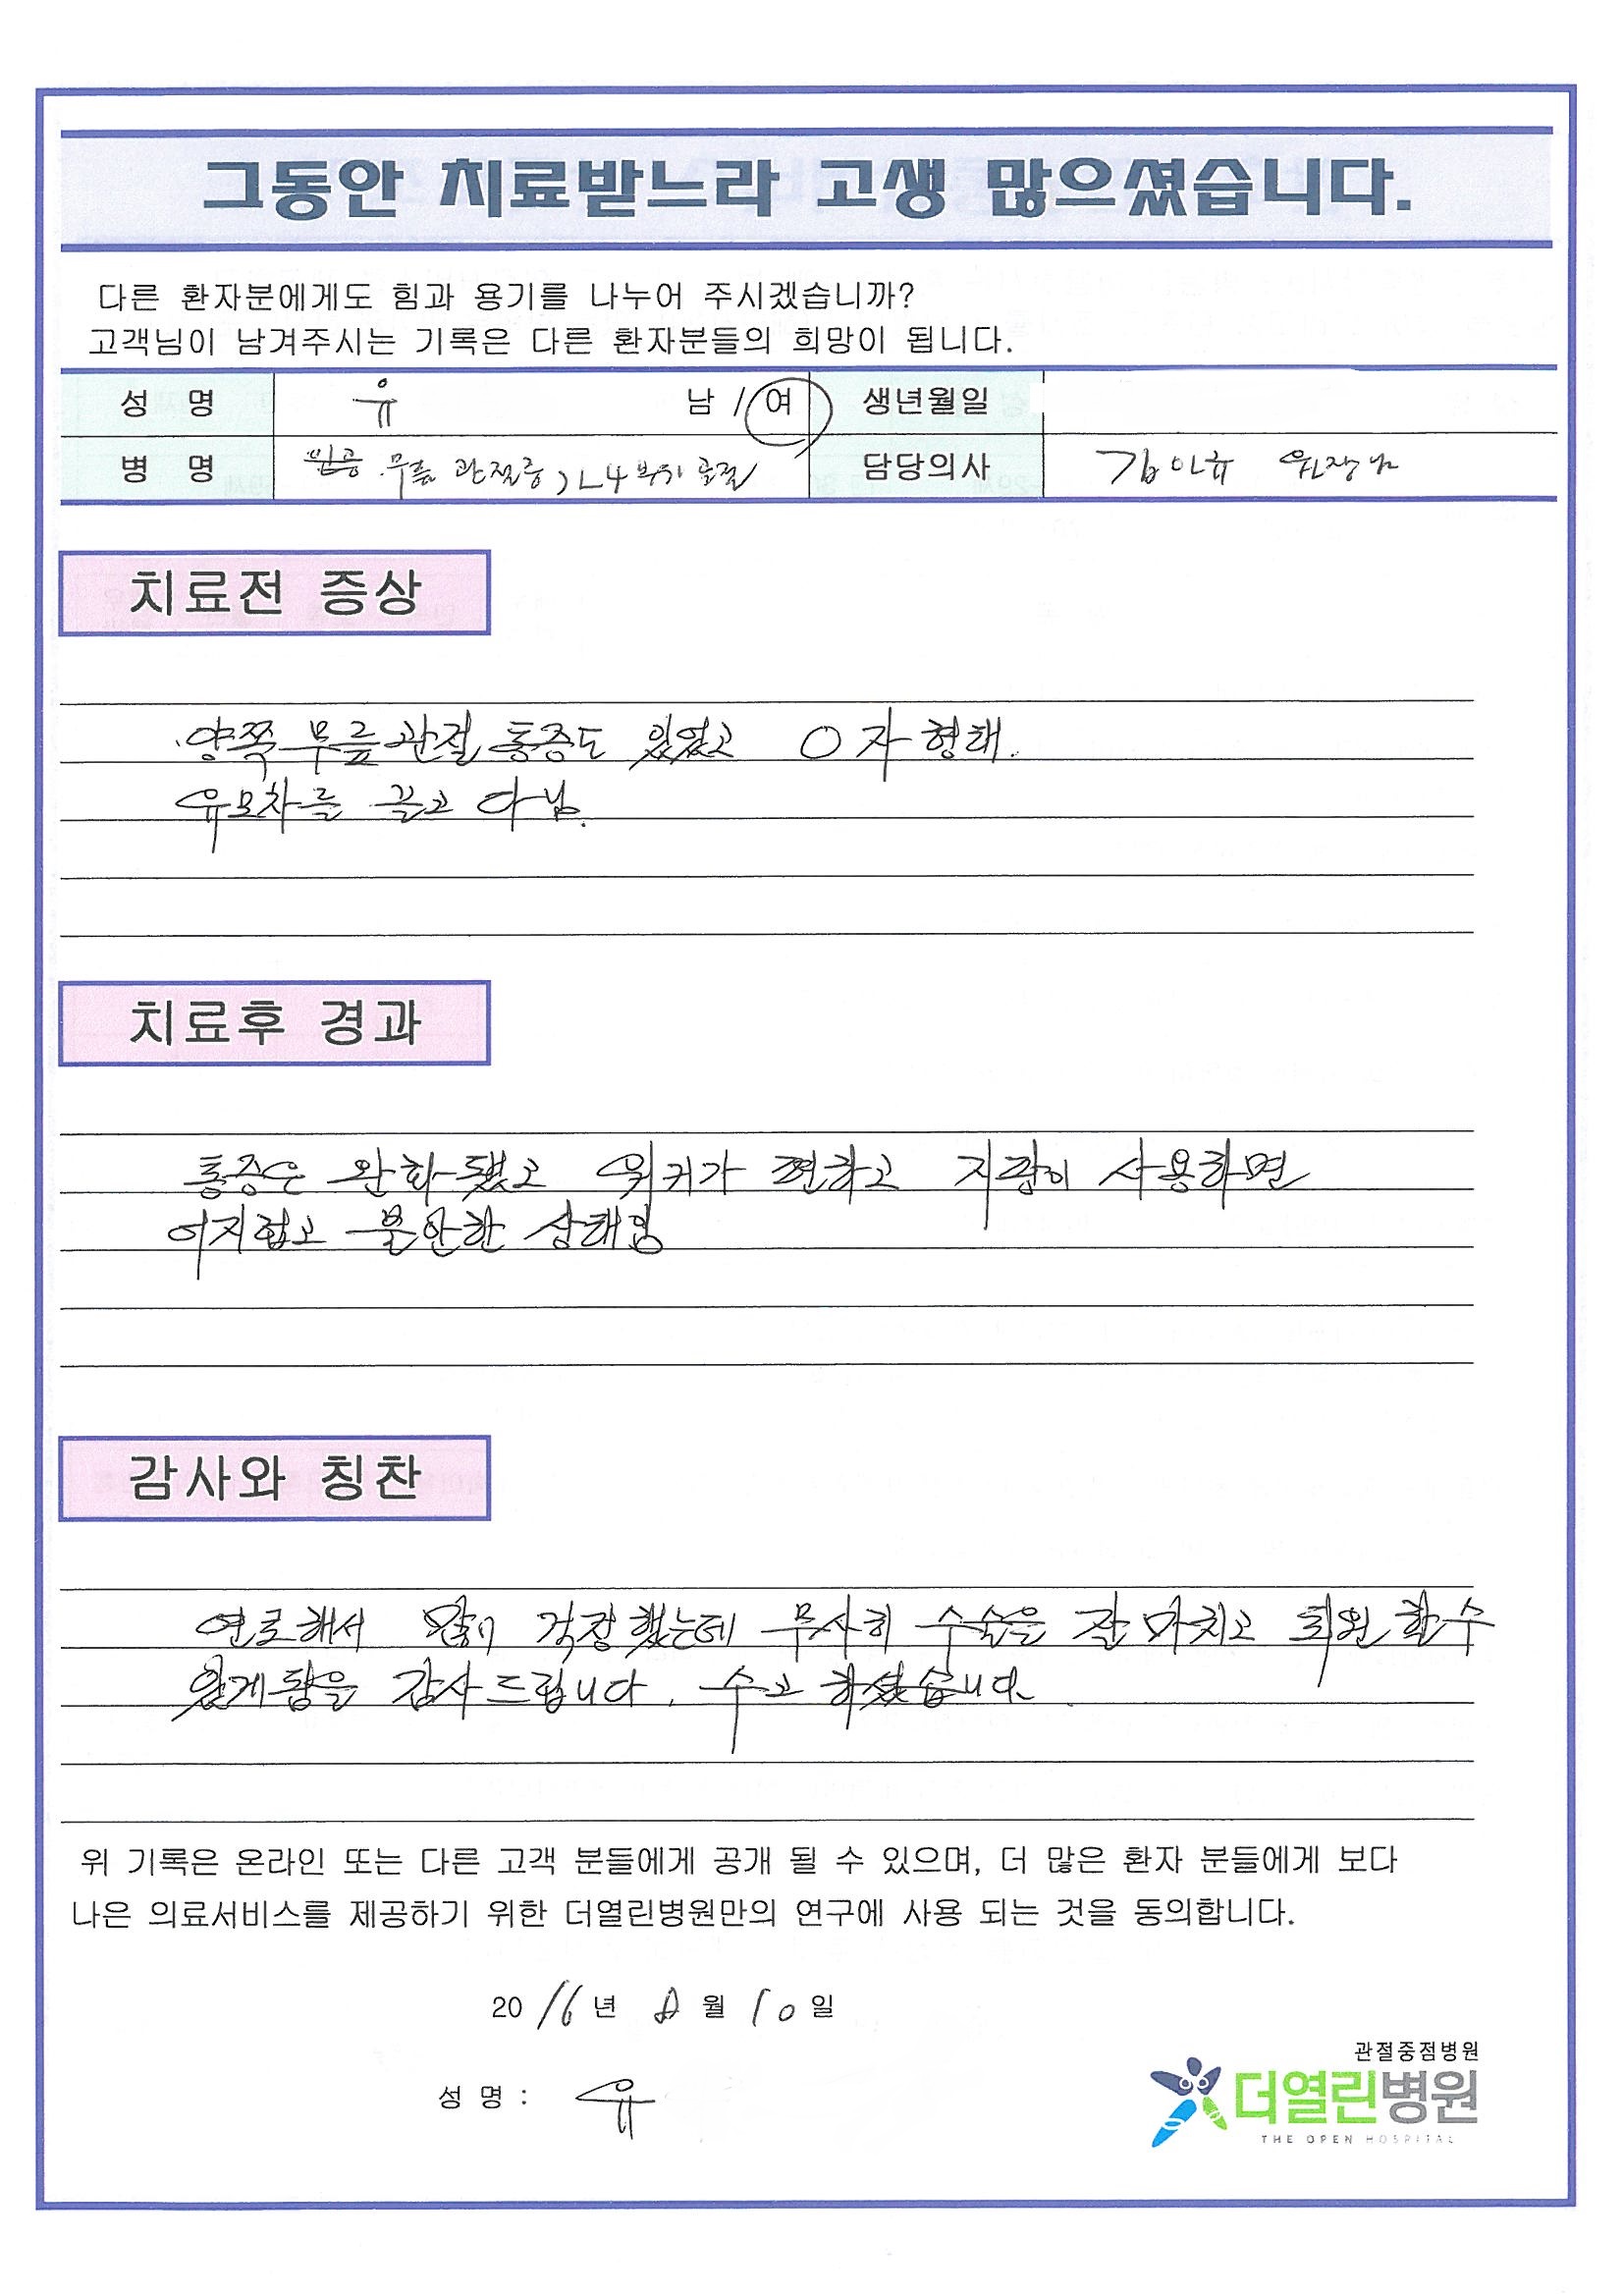 그동안 치료받느라 고생 많으셨습니다.
다른 환자분에게도 힘과 용기를 나누어 주시겠습니까?
고객님이 남겨주시는 기록은 다른 환자분들의 희망이 됩니다.
성 명 유 남 / 여 생년월일
병 명 무릎 관절증, L4 부위 골절 담당의사 원장님
치료전 증상
양쪽 무릎관절 통증도 있었고 O자형태.
유모차를 끌고 다님.
치료후 경과
통증은 완화됐고 워커가 편하고 지팡이 사용하면
어지럽고 불안한 상태임
감사와 칭찬
연로해서 많이 걱정했는데 무사히 수술을 잘 마치고 퇴원할수
있게됨을 감사드립니다. 수고 하셨습니다.
위 기록은 온라인 또는 다른 고객 분들에게 공개 될 수 있으며, 더 많은 환자 분들에게 보다
나은 의료서비스를 제공하기 위한 더열린병원만의 연구에 사용 되는 것을 동의합니다.
2016년 8월 10일
관절중점병원
성 명 : 유
더열린병원
THE OPEN HOSPITAL